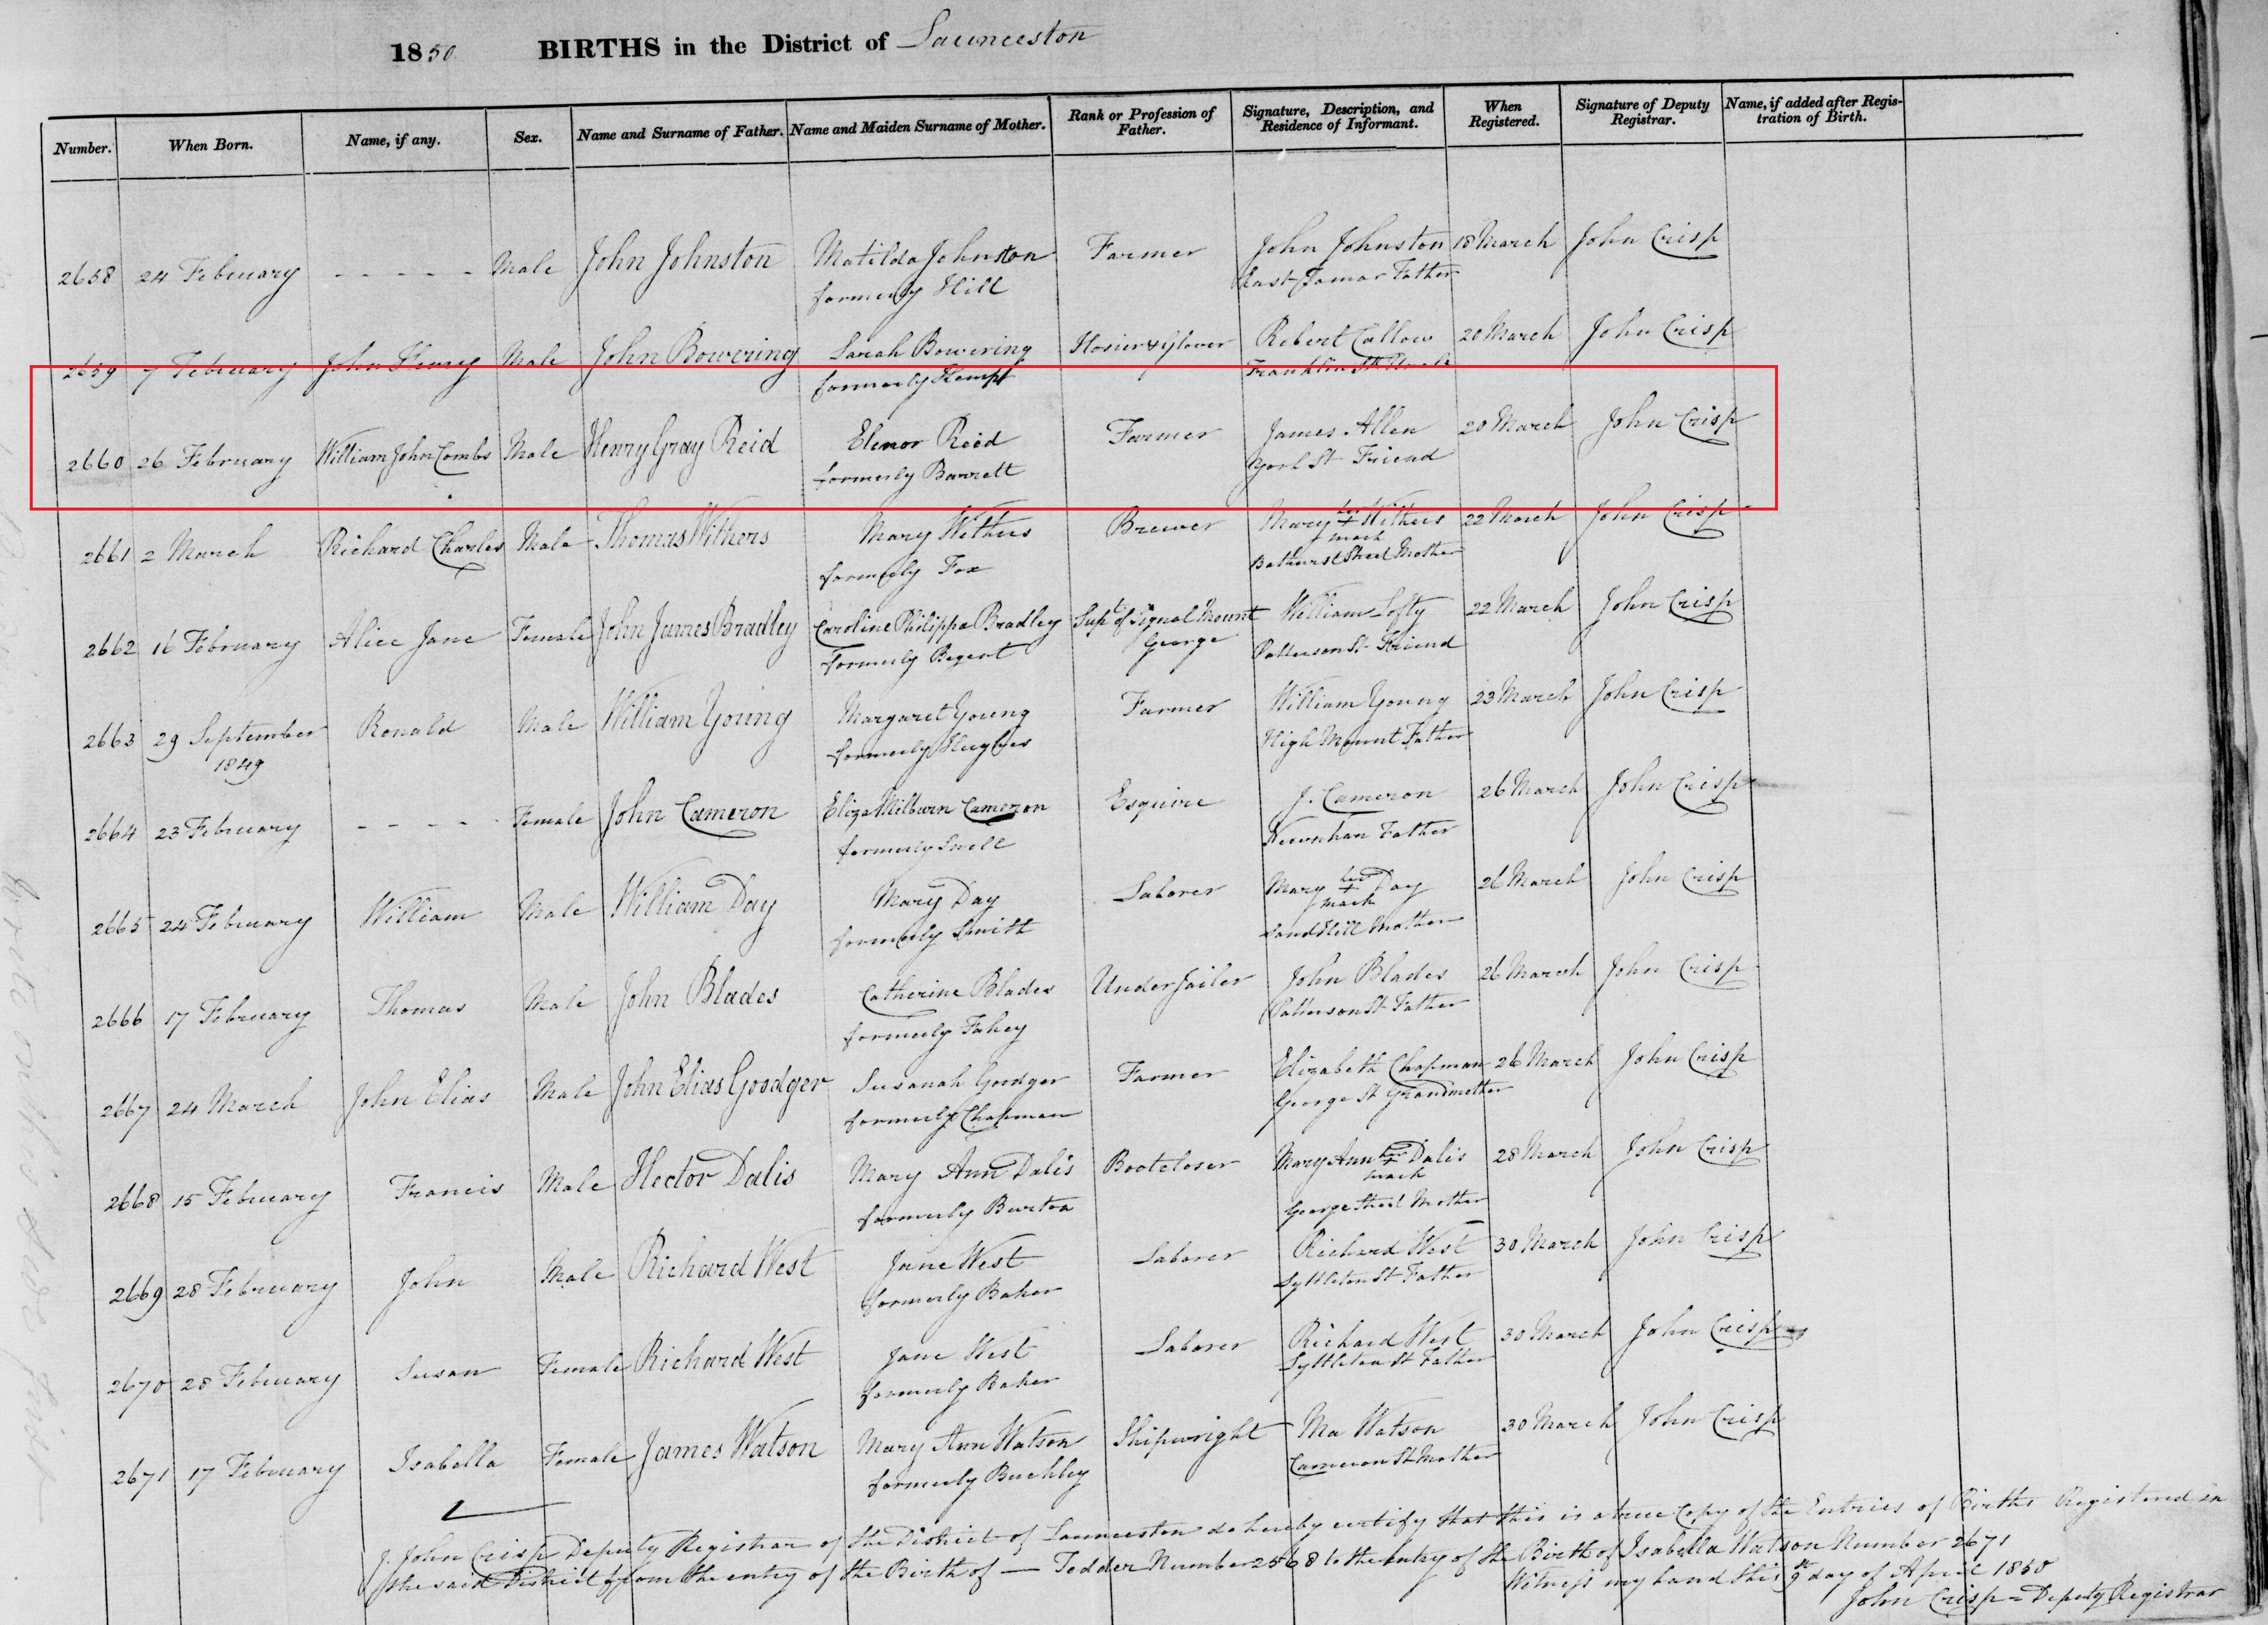 1850 BIRTHS in the District of Launceston
Number. When Born. Name, if any. Sex. Name and Surname of Father. Name and Maiden Surname of Mother. Rank or Profession of Father. Signature, Description, and Residence of Informant. When Registered. Signature of Deputy Registrar. Name, if added after Registration of Birth.
2658 24 February - - - - - Male John Johnston Matilda Johnston Farmer John Johnston 18 March John Crisp
formerly Hill East Tamar Father
2659 7 February John Henry Male John Bowering Sarah Bowering Hosier & Glover Robert Callow 20 March John Crisp
formerly Kemp Franklin St Uncle
2660 26 February William John Combs Male Henry Gray Reid Elenor Reid Farmer James Allen 20 March John Crisp
formerly Barrett York St Friend
2661 2 March Richard Charles Male Thomas Withers Mary Withers Brewer Mary her + mark Withers 22 March John Crisp
formerly Fox Bathurst Street Mother
2662 16 February Alice Jane Female John James Bradley Caroline Philippa Bradley Supt of Signal Mount William Lofty 22 March John Crisp
formerly Regent George Patterson St Friend
2663 29 September Ronald Male William Young Margaret Young Farmer William Young 23 March John Crisp
1849 formerly Hughes High Mount Father
2664 23 February - - - - Female John Cameron Eliza Milburn Cameron Esquire J. Cameron 26 March John Crisp
formerly Snell Newnhan Father
2665 24 February William Male William Day Mary Day Laborer Mary her + mark Day 26 March John Crisp
formerly Smith Sand Hill Mother
2666 17 February Thomas Male John Blades Catherine Blades Under Jailer John Blades 26 March John Crisp
formerly Fahey Patterson St Father
2667 24 March John Elias Male John Elias Goodger Susanah Goodger Farmer Elizabeth Chapman 26 March John Crisp
formerly Chapman George St Grandmother
2668 15 February Francis Male Hector Dalis Mary Ann Dalis Bootcloser Mary Ann her + mark Dalis 28 March John Crisp
formerly Burton George Street Mother
2669 28 February John Male Richard West Jane West Laborer Richard West 30 March John Crisp
formerly Baker Lyttleton St Father
2670 28 February Susan Female Richard West Jane West Laborer Richard West 30 March John Crisp
formerly Baker Lyttleton St Father
2671 17 February Isabella Female James Watson Mary Ann Watson Shipwright Ma Watson 30 March John Crisp
formerly Buckley Cameron St Mother
I, John Crisp Deputy Registrar of the District of Launceston do hereby certify that this is a true Copy of the Entries of Births Registered in
the said District from the entry of the Birth of — Tedder Number 2568 to the entry of the Birth of Isabella Watson Number 2671
Witness my hand this 9th day of April 1850
John Crisp = Deputy Registrar